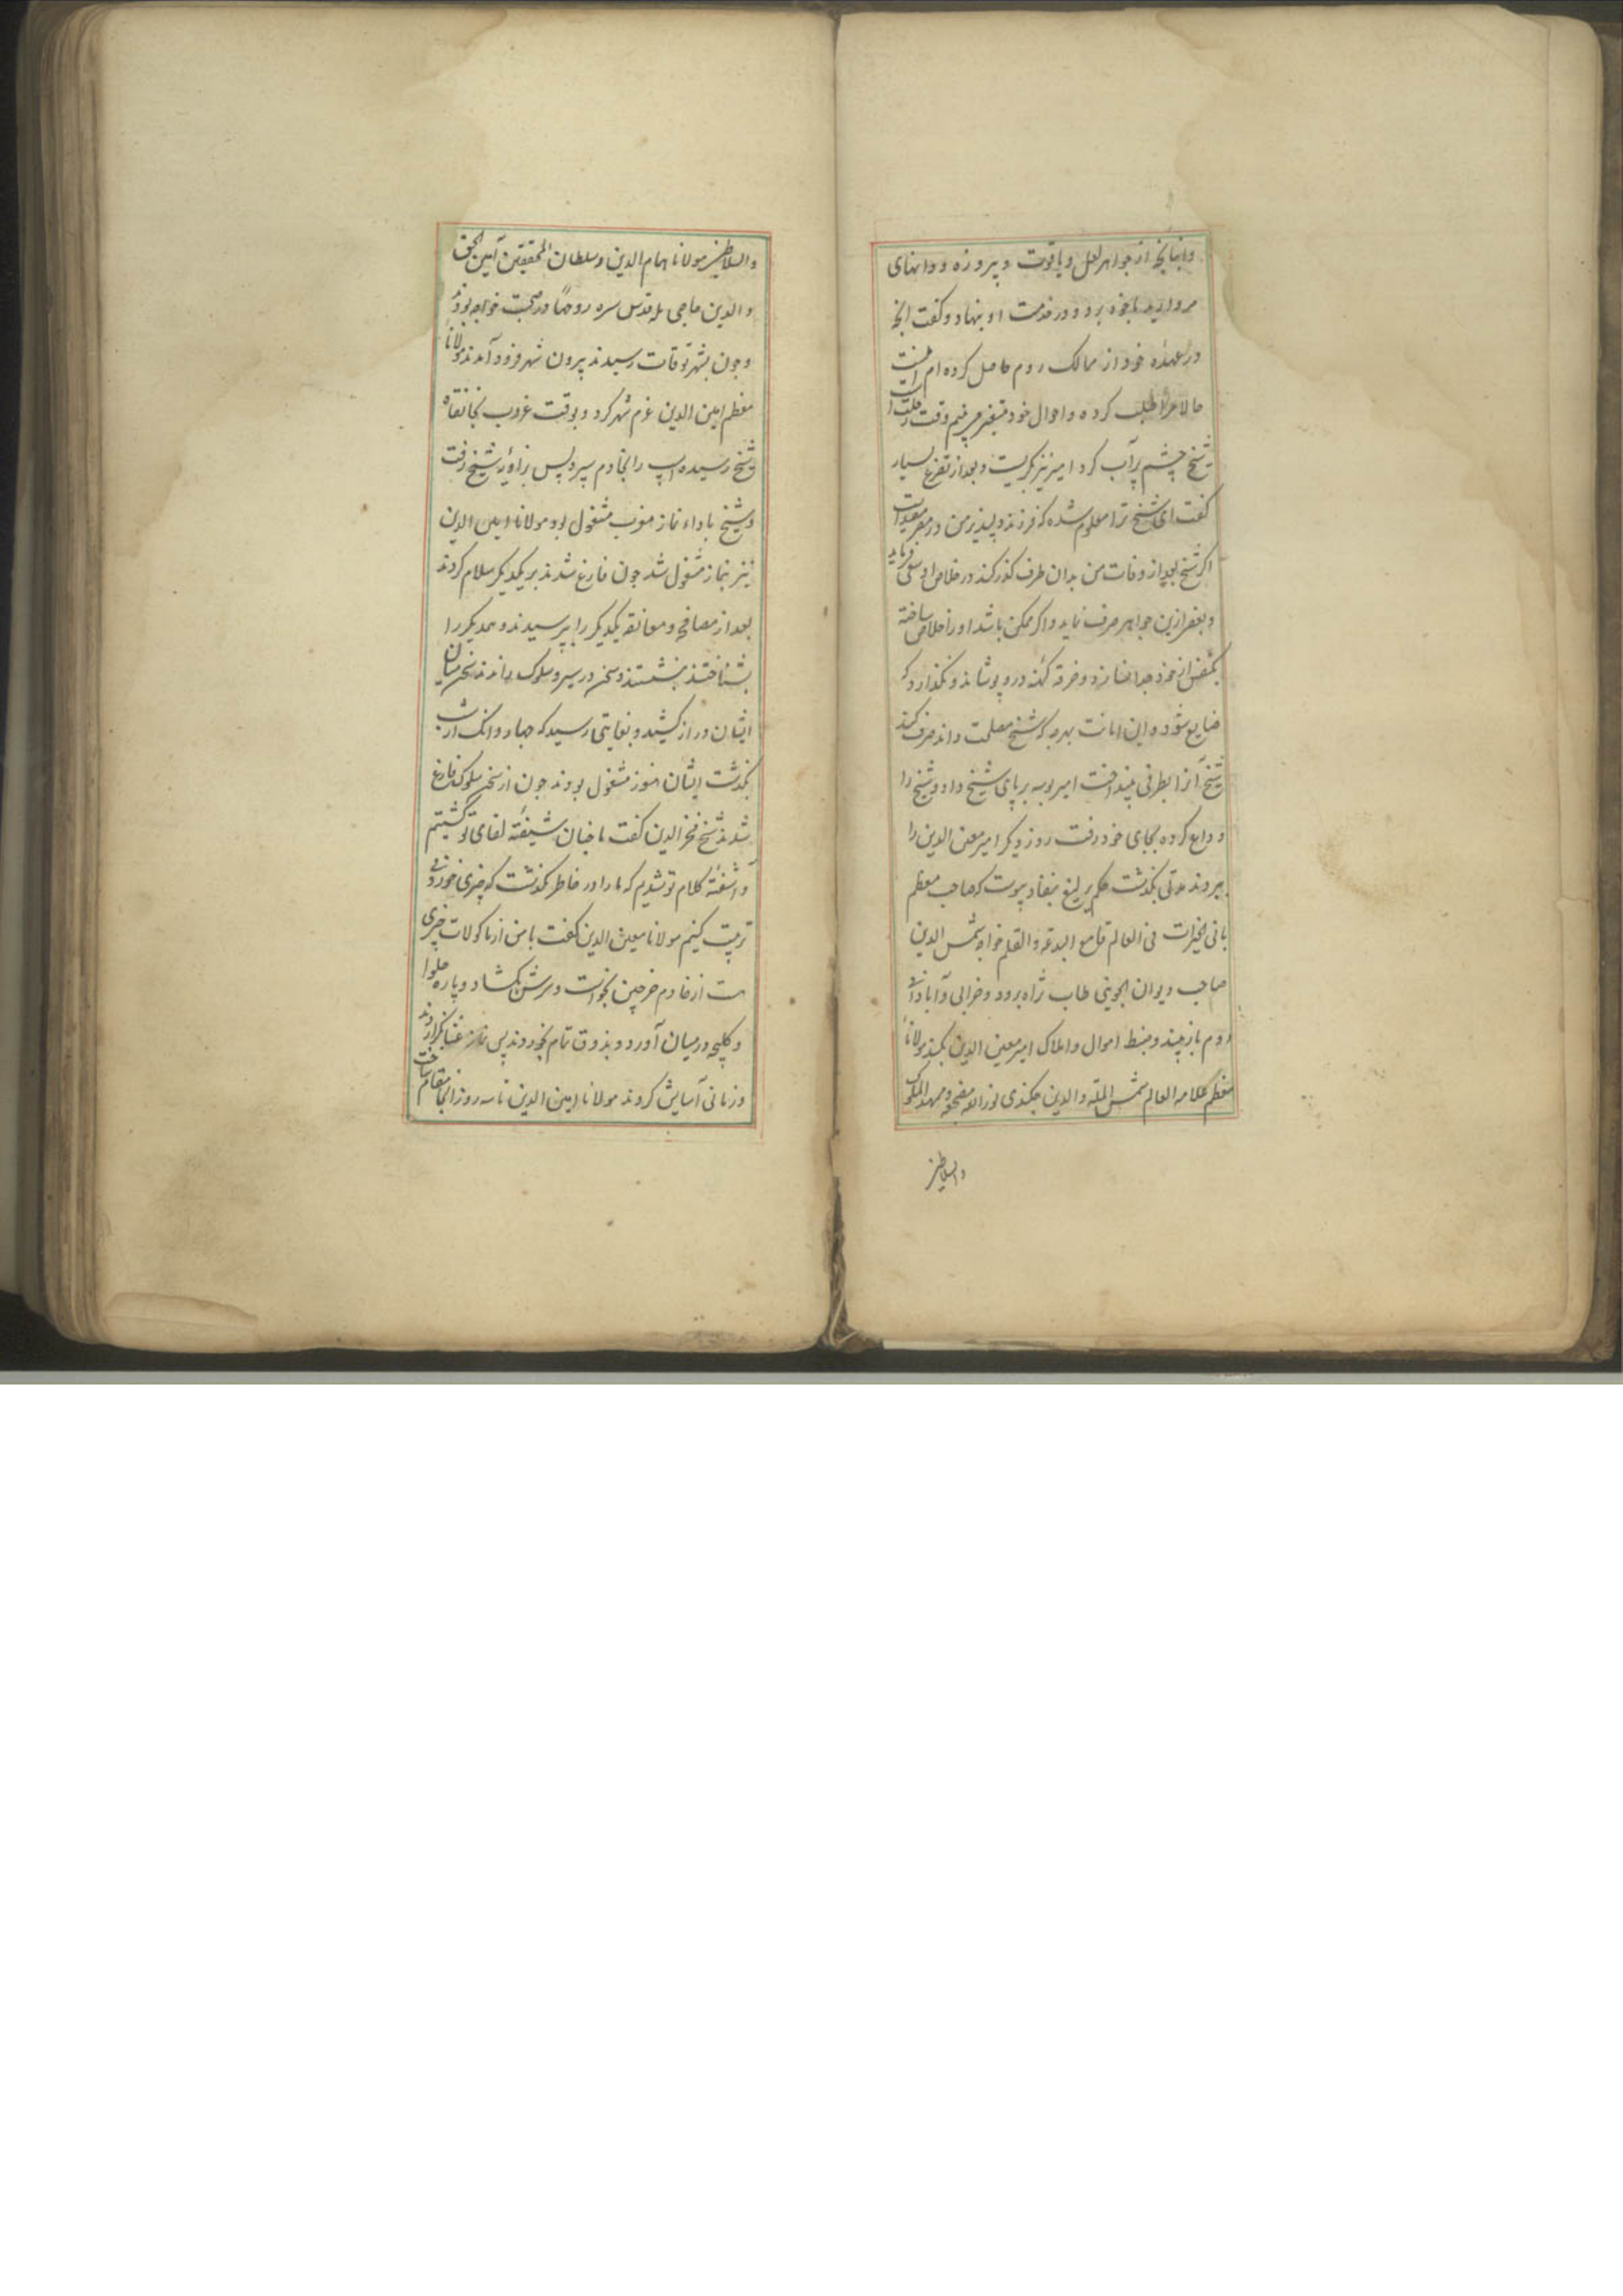 وانبانچه از جواهر لعل و یاقوت و پیروزه و دانهای
مروارید باخود برد و در خدمت او بنهاد و گفت انچ
در عهده خود از ممالک روم حاصل کرده ام اینست
حالا مرا طلب کرده و احوال خود متغیر می بینم وقت رحلت
شیخ چشم پرآب کرد امیر نیز بکریست و بعد از تضرع بسیار
گفت ای شیخ ترا معلوم شده که فرزند دلپذیر من در مصر مقیدست
اکر شیخ بعد از وفات من بدان طرف کذر کند در خلاص او سعی نماید
و بعضی ازین جواهر صرف نماید و اکر ممکن باشد اورا خلاص ساخته
یک نفس از خود جدا نسازد و خرقه کهنه در و پوشاند و نکذارد که
ضایع شود و این امانت بهرچه که شیخ مصلحت داند صرف کند
شیخ آنرا بطرفی بینداخت امیر بوسه بر پای شیخ داد و شیخ را
وداع کرده بجای خود رفت روز دیکر امیر معین الدین را
ببردند مدتی بکذشت حکم یرلیغ بنفاد پیوست که صاحب معظم
بانی الخیرات فی العالم قامع البدعة والظلم خواجه شمس الدین
صاحب دیوان الجوینی طاب ثراه برود و خرابی و آبادانی
روم باز بیند و ضبط اموال و املاک امیر معین الدین بکند مولانا
معظم علامه العالم شمس الملة والدین نور الله مضجعه و ممهد الملوک
والسلاطین
والسلاطین مولانا همام الدین و سلطان المحققین امین الحق
والدین حاجی بله قدس سره روحهما در صحبت خواجه بودند
و چون بشهر توقات رسیدند بیرون شهر فرود آمدند مولانا
معظم امین الدین عزم شهر کرد و بوقت غروب بخانقاه
شیخ رسیده اسپ را بخادم سپرد پس بزاویه شیخ رفت
و شیخ باداء نماز مغرب مشغول بود مولانا امین الدین
نیز بنماز مشغول شد چون فارغ شدند بر یکدیکر سلام کردند
بعد از مصافحه و معانقه یکدیکر را بپرسیدند و همدیکر را
بشناختند بنشستند و سخن در سیر و سلوک راندند سخن میان
ایشان دراز کشید و بغایتی رسید که چهار دانک از شب
بکذشت ایشان هنوز مشغول بودند چون از سخن سلوک فارغ
شدند شیخ فخر الدین گفت ما چنان شیفته لقای تو گشتیم
و آشفته کلام تو شدیم که ما را در خاطر نکذشت که چیزی خوردنی
ترتیب کنیم مولانا معین الدین گفت با من از ماکولات چیزی
هست از خادم خرجین بخواست و سرش بکشاد و پاره حلوا
و کلیچه در میان آورد و بذوق تمام بخوردند پس نماز عشا بکزاردند
و زمانی آسایش کردند مولانا امین الدین تا سه روز آنجا مقام ساخت